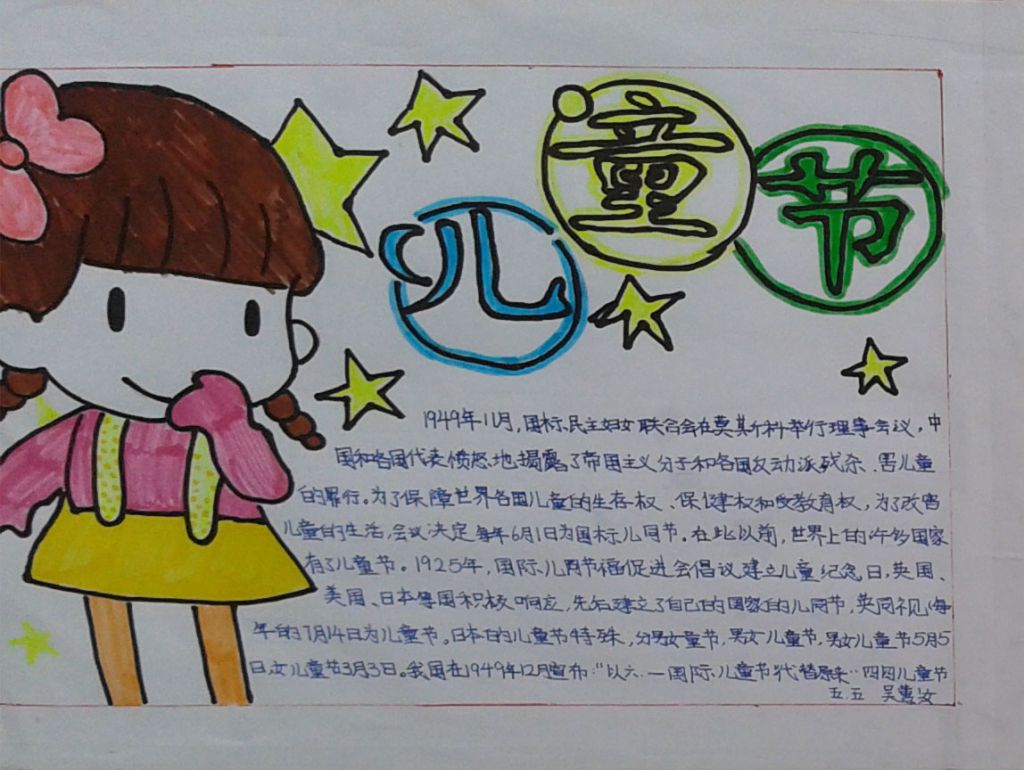 儿童节
1949年11月,国际民主妇女联合会在莫斯科举行理事会议,中
国和各国代表愤怒地揭露了帝国主义分子和各国反动派残杀、害儿童
的罪行。为了保障世界各国儿童的生存权、保健权和受教育权,为了改害
儿童的生活,会议决定每年6月1日为国际儿同节。在此以前,世界上的许多国家
有了儿童节。1925年,国际儿同节福促进会倡议建立儿童纪念日,英国、
美国、日本等国积极响应,先后建立了自己的国家的儿同节,英同视(每
年的7月14日为儿童节。日本的儿童节特殊,分男女童节,男女儿童节,男女儿童节5月5
日,女儿童节3月3日。我国在1949年12月宣布:“以六一国际儿童节代替原来‘四四儿童节
五.五 吴 汝